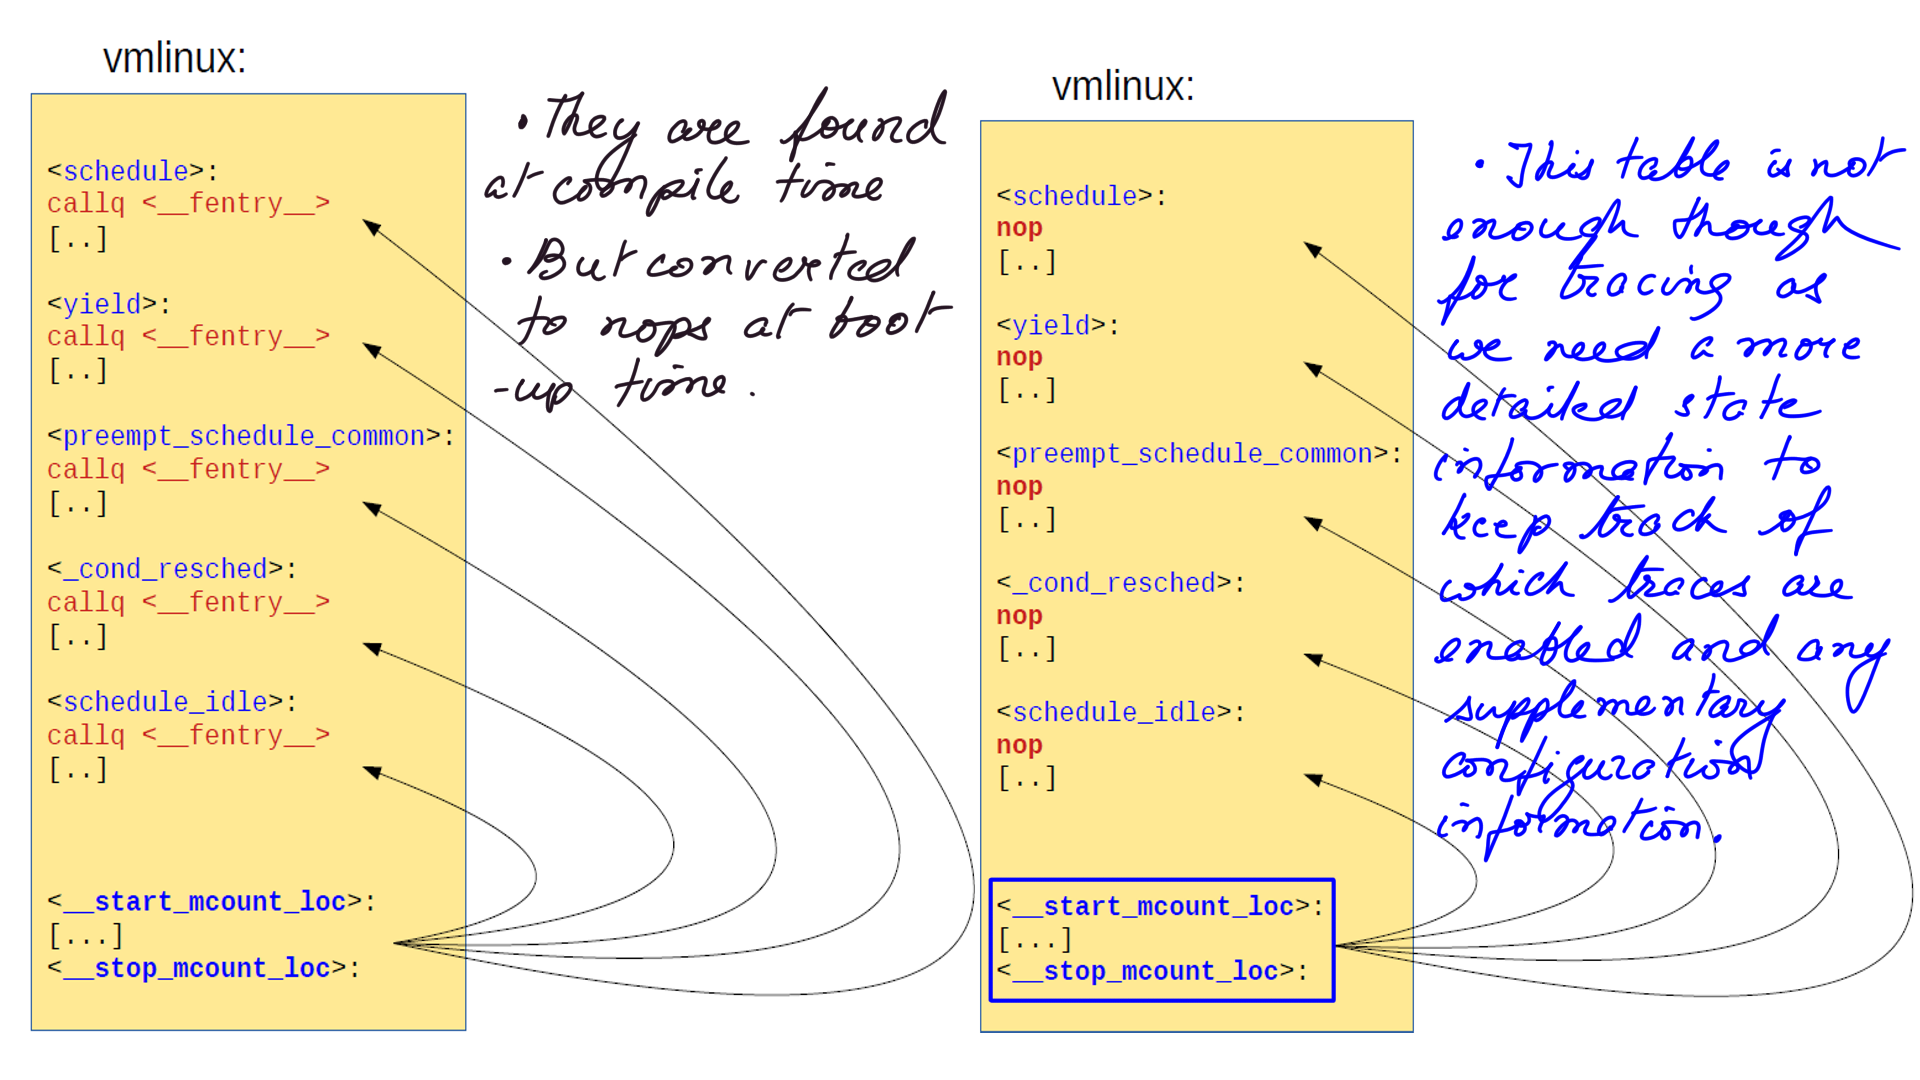 vmlinux:
<schedule>:
callq <__fentry__>
[..]
<yield>:
callq <__fentry__>
[..]
<preempt_schedule_common>:
callq <__fentry__>
[..]
<_cond_resched>:
callq <__fentry__>
[..]
<schedule_idle>:
callq <__fentry__>
[..]
<__start_mcount_loc>:
[...]
<__stop_mcount_loc>:
• They are found
at compile time
• But converted
to nops at boot
-up time.
vmlinux:
<schedule>:
nop
[..]
<yield>:
nop
[..]
<preempt_schedule_common>:
nop
[..]
<_cond_resched>:
nop
[..]
<schedule_idle>:
nop
[..]
<__start_mcount_loc>:
[...]
<__stop_mcount_loc>:
• This table is not
enough though
for tracing as
we need a more
detailed state
information to
keep track of
which traces are
enabled and any
supplementary
configuration
information.